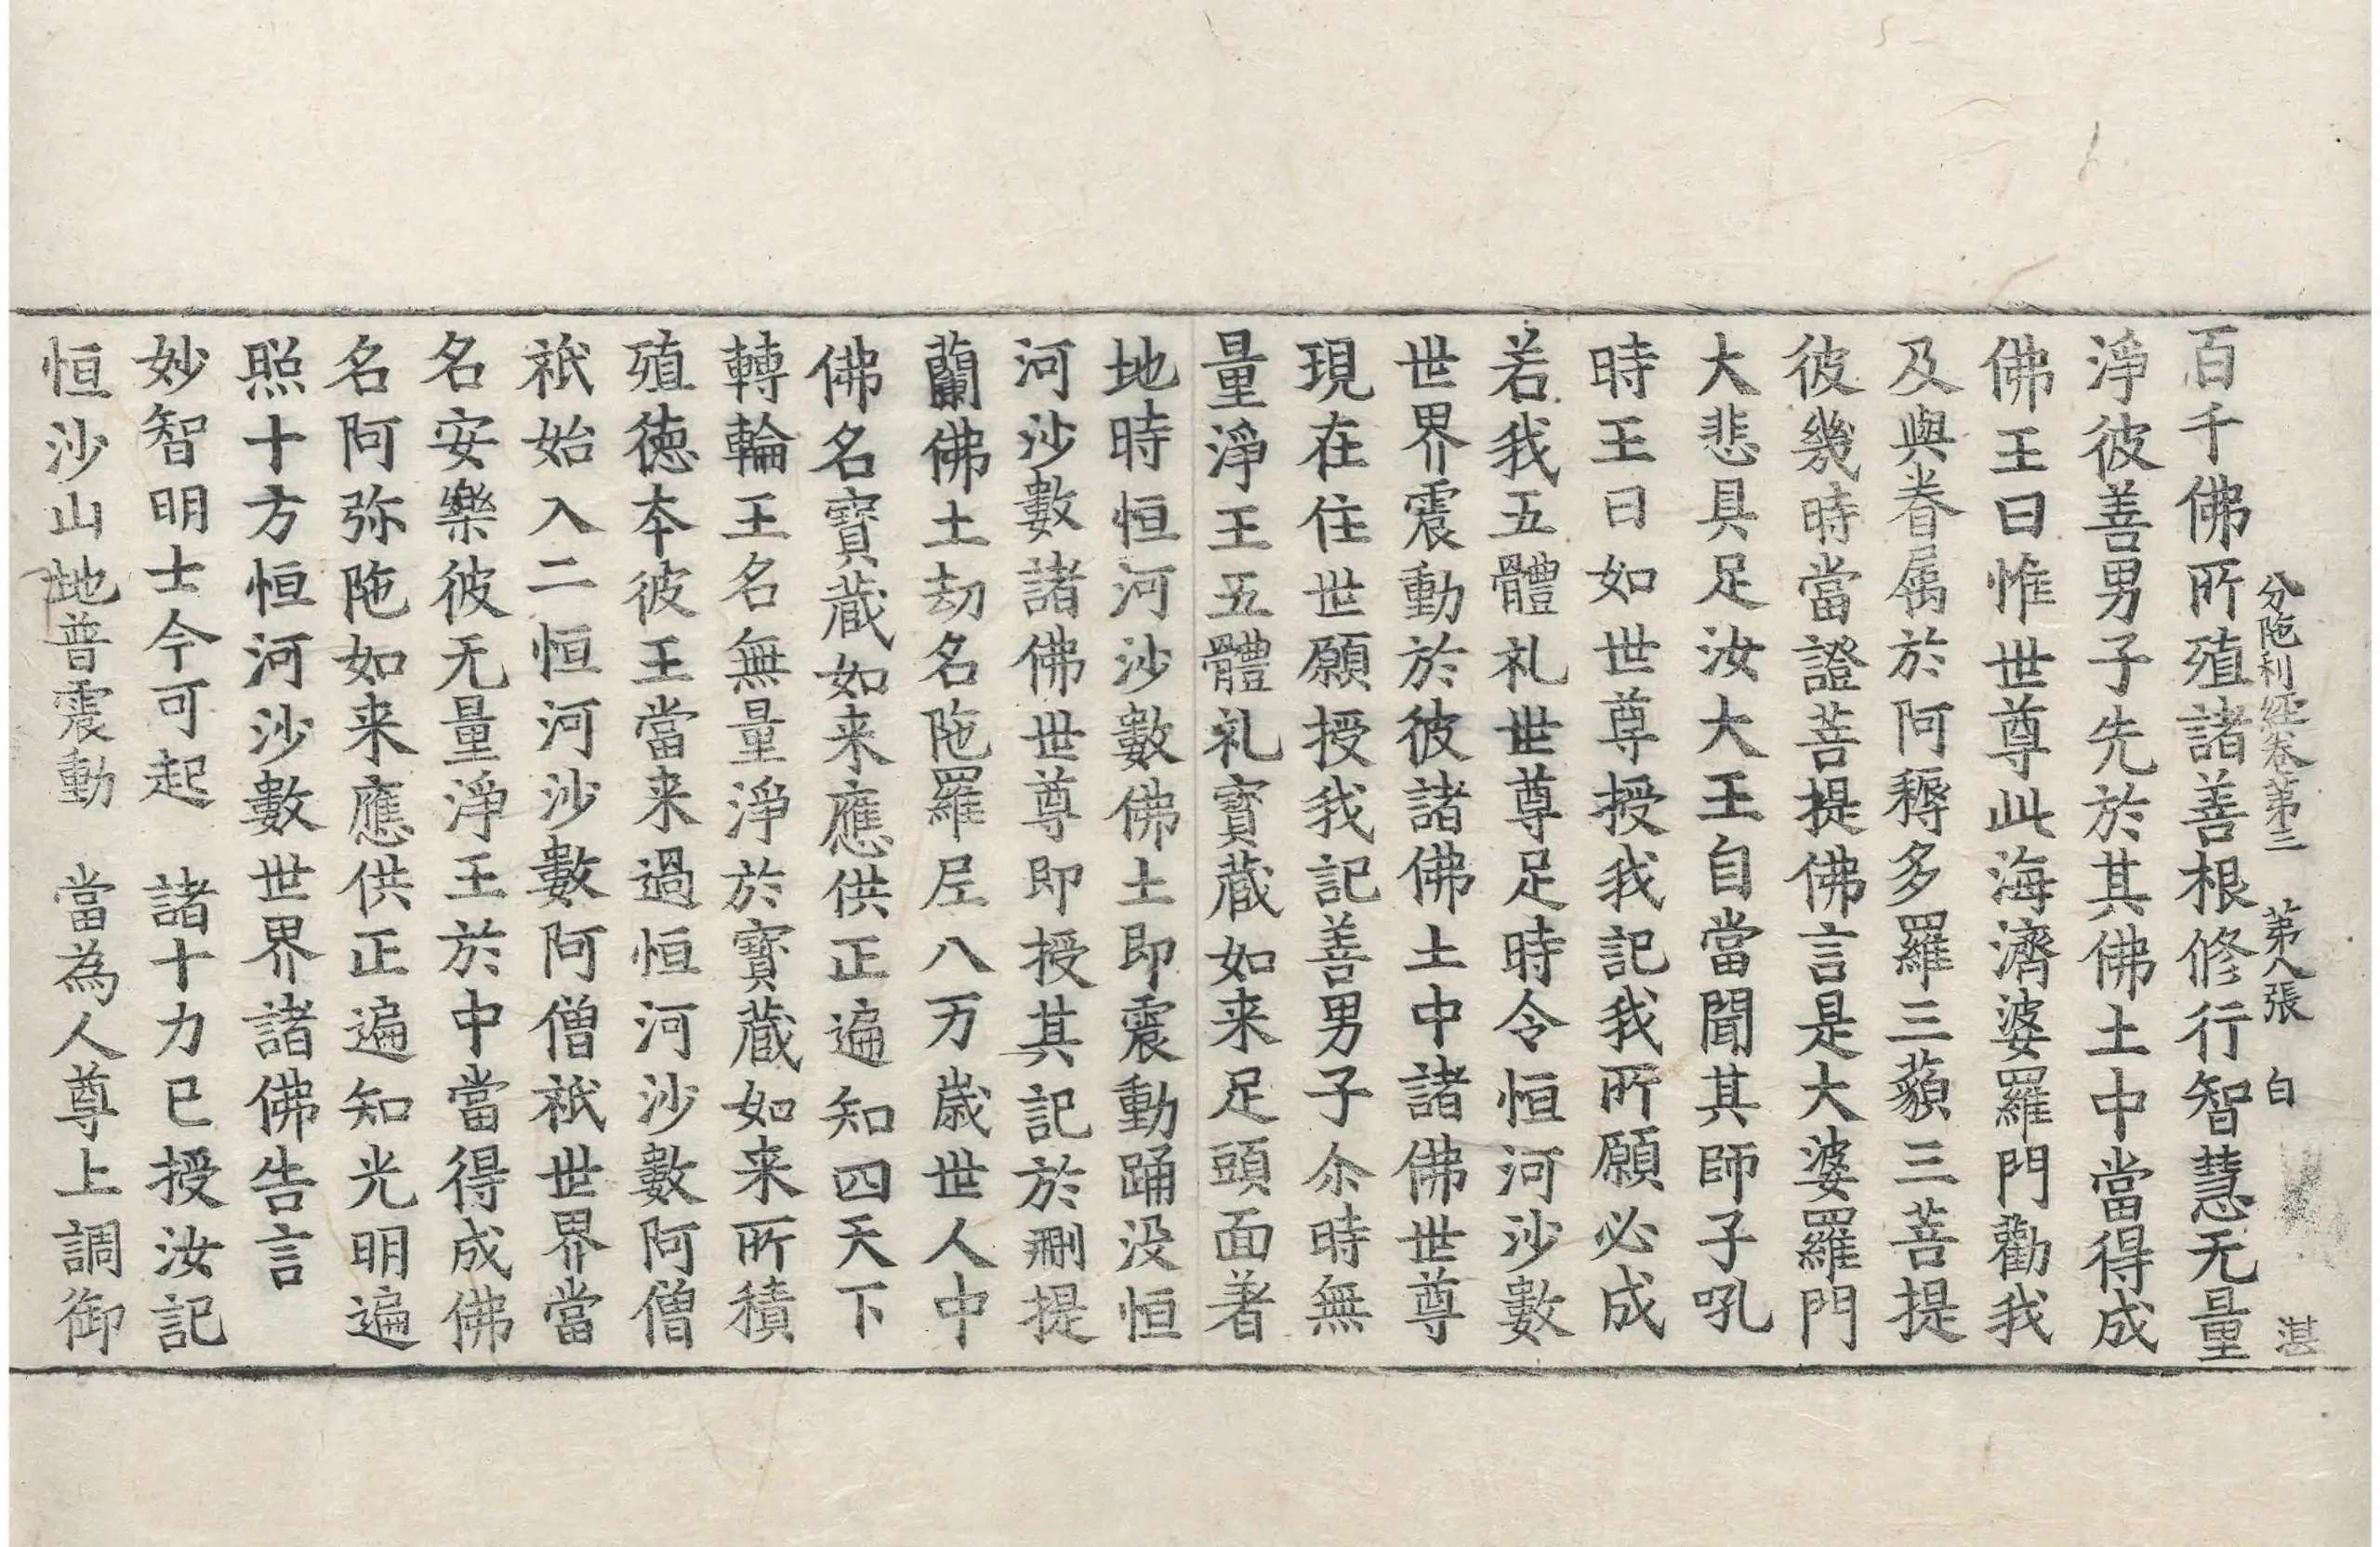 分陁利經卷第三　第八張　白　湛
百千佛所殖諸善根修行智慧无量
淨彼善男子先於其佛土中當得成
佛王曰惟世尊此海濟婆羅門勸我
及與眷属於阿耨多羅三藐三菩提
彼幾時當證菩提佛言是大婆羅門
大悲具足汝大王自當聞其師子吼
時王曰如世尊授我記我所願必成
若我五體礼世尊足時令恒河沙數
世界震動於彼諸佛土中諸佛世尊
現在住世願授我記善男子尒時無
量淨王五體礼寶蔵如来足頭面著
地時恒河沙數佛土即震動踊没恒
河沙數諸佛世尊即授其記於刪提
蘭佛土劫名陁羅𡰱八万歲世人中
佛名寶蔵如来應供正遍知四天下
轉輪王名無量淨於寶蔵如来所積
殖德本彼王當来過恒河沙數阿僧
祇始入二恒河沙數阿僧祇世界當
名安樂彼无量淨王於中當得成佛
名阿弥陁如来應供正遍知光明遍
照十方恒河沙數世界諸佛告言
妙智明士今可起　諸十力已授汝記
恒沙山地普震動　當為人尊上調御